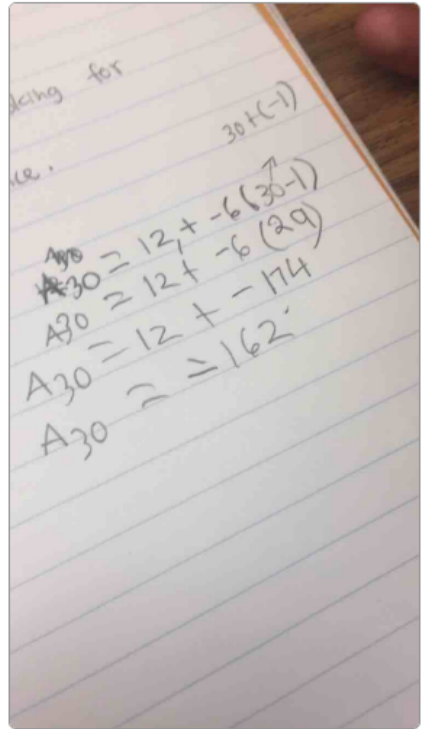 king for
ce.
30+(-1)
A30 = 12, + -6(30-1)
A30 = 12 + -6 (29)
A30 = 12 + - 174
A30 = -162